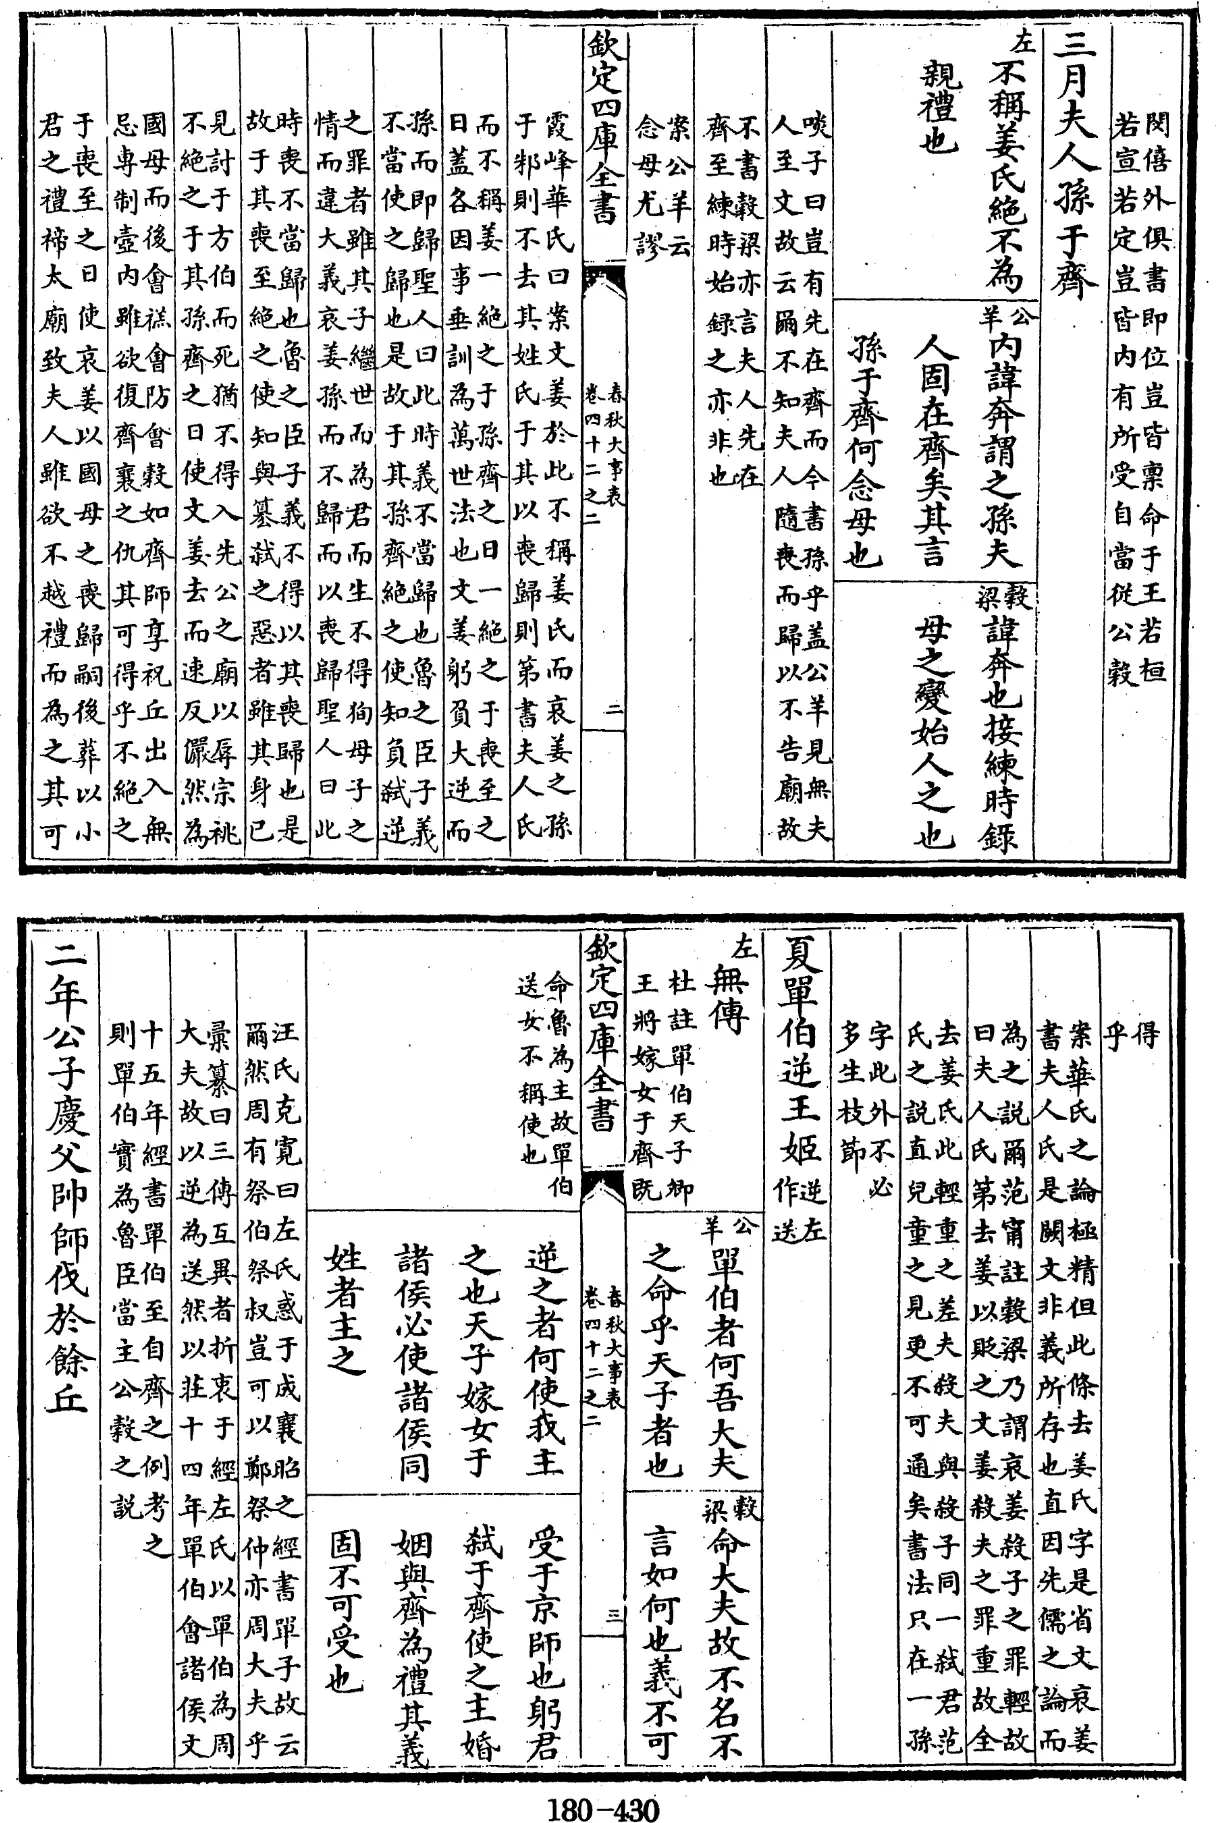 閔僖外俱書即位豈皆禀命于王若桓
若宣若定豈皆内有所受自當從公穀
三月夫人孫于齊
左
不稱姜氏絶不為
親禮也
公羊
内諱奔謂之孫夫
人固在齊矣其言
孫于齊何念母也
穀梁
諱奔也接練時錄
母之變始人之也
啖子曰豈有先在齊而今書孫乎盖公羊見無夫
人至文故云爾不知夫人隨喪而歸以不告廟故
不書穀梁亦言夫人先在
齊至練時始録之亦非也
案公羊云
念母尤謬
欽定四庫全書
春秋大事表
卷四十二之二
二
霞峰華氏曰案文姜於此不稱姜氏而哀姜之孫
于邾則不去其姓氏于其以喪歸則第書夫人氏
而不稱姜一絶之于孫齊之日一絶之于喪至之
日盖各因事垂訓為萬世法也文姜躬負大逆而
孫而即歸聖人曰此時義不當歸也魯之臣子義
不當使之歸也是故于其孫齊絶之使知負弑逆
之罪者雖其子繼世而為君而生不得狥母子之
情而違大義哀姜孫而不歸而以喪歸聖人曰此
時喪不當歸也魯之臣子義不得以其喪歸也是
故于其喪至絶之使知與簒弑之惡者雖其身已
見討于方伯而死猶不得入先公之廟以辱宗祧
不絶之于其孫齊之日使文姜去而速反儼然為
國母而後會禚會防會穀如齊師享祝丘出入無
忌専制壼内雖欲復齊襄之仇其可得乎不絶之
于喪至之日使哀姜以國母之喪歸嗣後葬以小
君之禮禘太廟致夫人雖欲不越禮而為之其可
得
乎
案華氏之論極精但此條去姜氏字是省文哀姜
書夫人氏是闕文非義所存也直因先儒之論而
為之説爾范甯註穀梁乃謂哀姜殺子之罪輕故
曰夫人氏第去姜以貶之文姜殺夫之罪重故全
去姜氏此輕重之差夫殺夫與殺子同一弑君范
氏之説直兒童之見更不可通矣書法只在一孫
字此外不必
多生枝節
夏單伯逆王姬
左逆
作送
左
無傳
杜註單伯天子卿
王將嫁女于齊既
命魯為主故單伯
送女不稱使也
公羊
單伯者何吾大夫
之命乎天子者也
逆之者何使我主
之也天子嫁女于
諸侯必使諸侯同
姓者主之
穀梁
命大夫故不名不
言如何也義不可
受于京師也躬君
弑于齊使之主婚
姻與齊為禮其義
固不可受也
欽定四庫全書
春秋大事表
卷四十二之二
三
汪氏克寛曰左氏惑于成襄昭之經書單子故云
爾然周有祭伯祭叔豈可以鄭祭仲亦周大夫乎
彙纂曰三傳互異者折衷于經左氏以單伯為周
大夫故以逆為送然以莊十四年單伯會諸侯文
十五年經書單伯至自齊之例考之
則單伯實為魯臣當主公穀之説
二年公子慶父帥師伐於餘丘
180-430